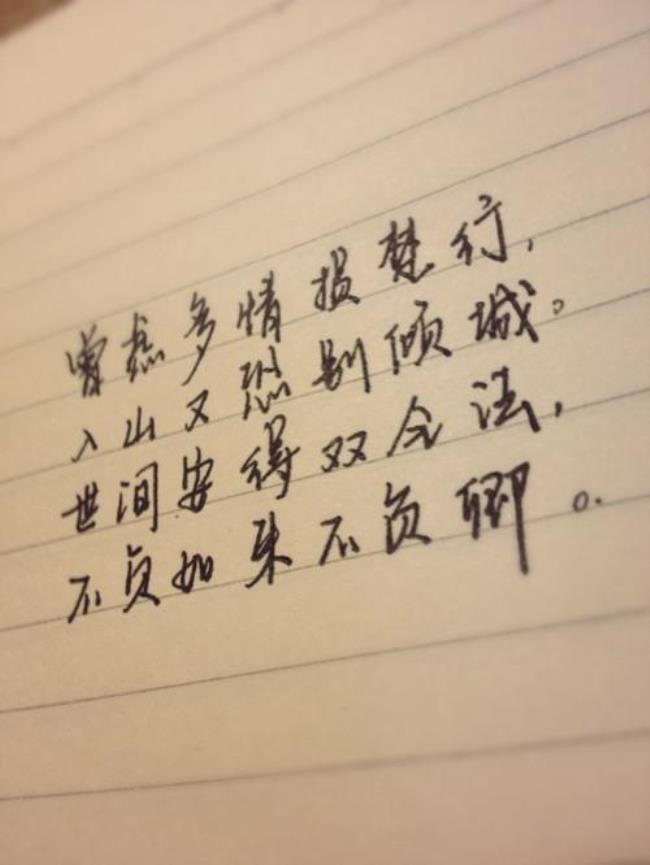 曾虑多情损梵行,
入山又恐别倾城。
世间安得双全法,
不负如来不负卿。